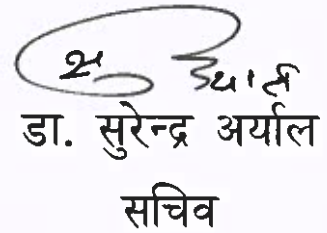 डा. सुरेन्द्र अर्याल
सचिव